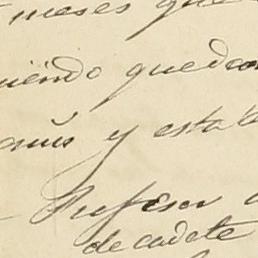 meses que
iendo quedan
y esta
Profesor
de cadete